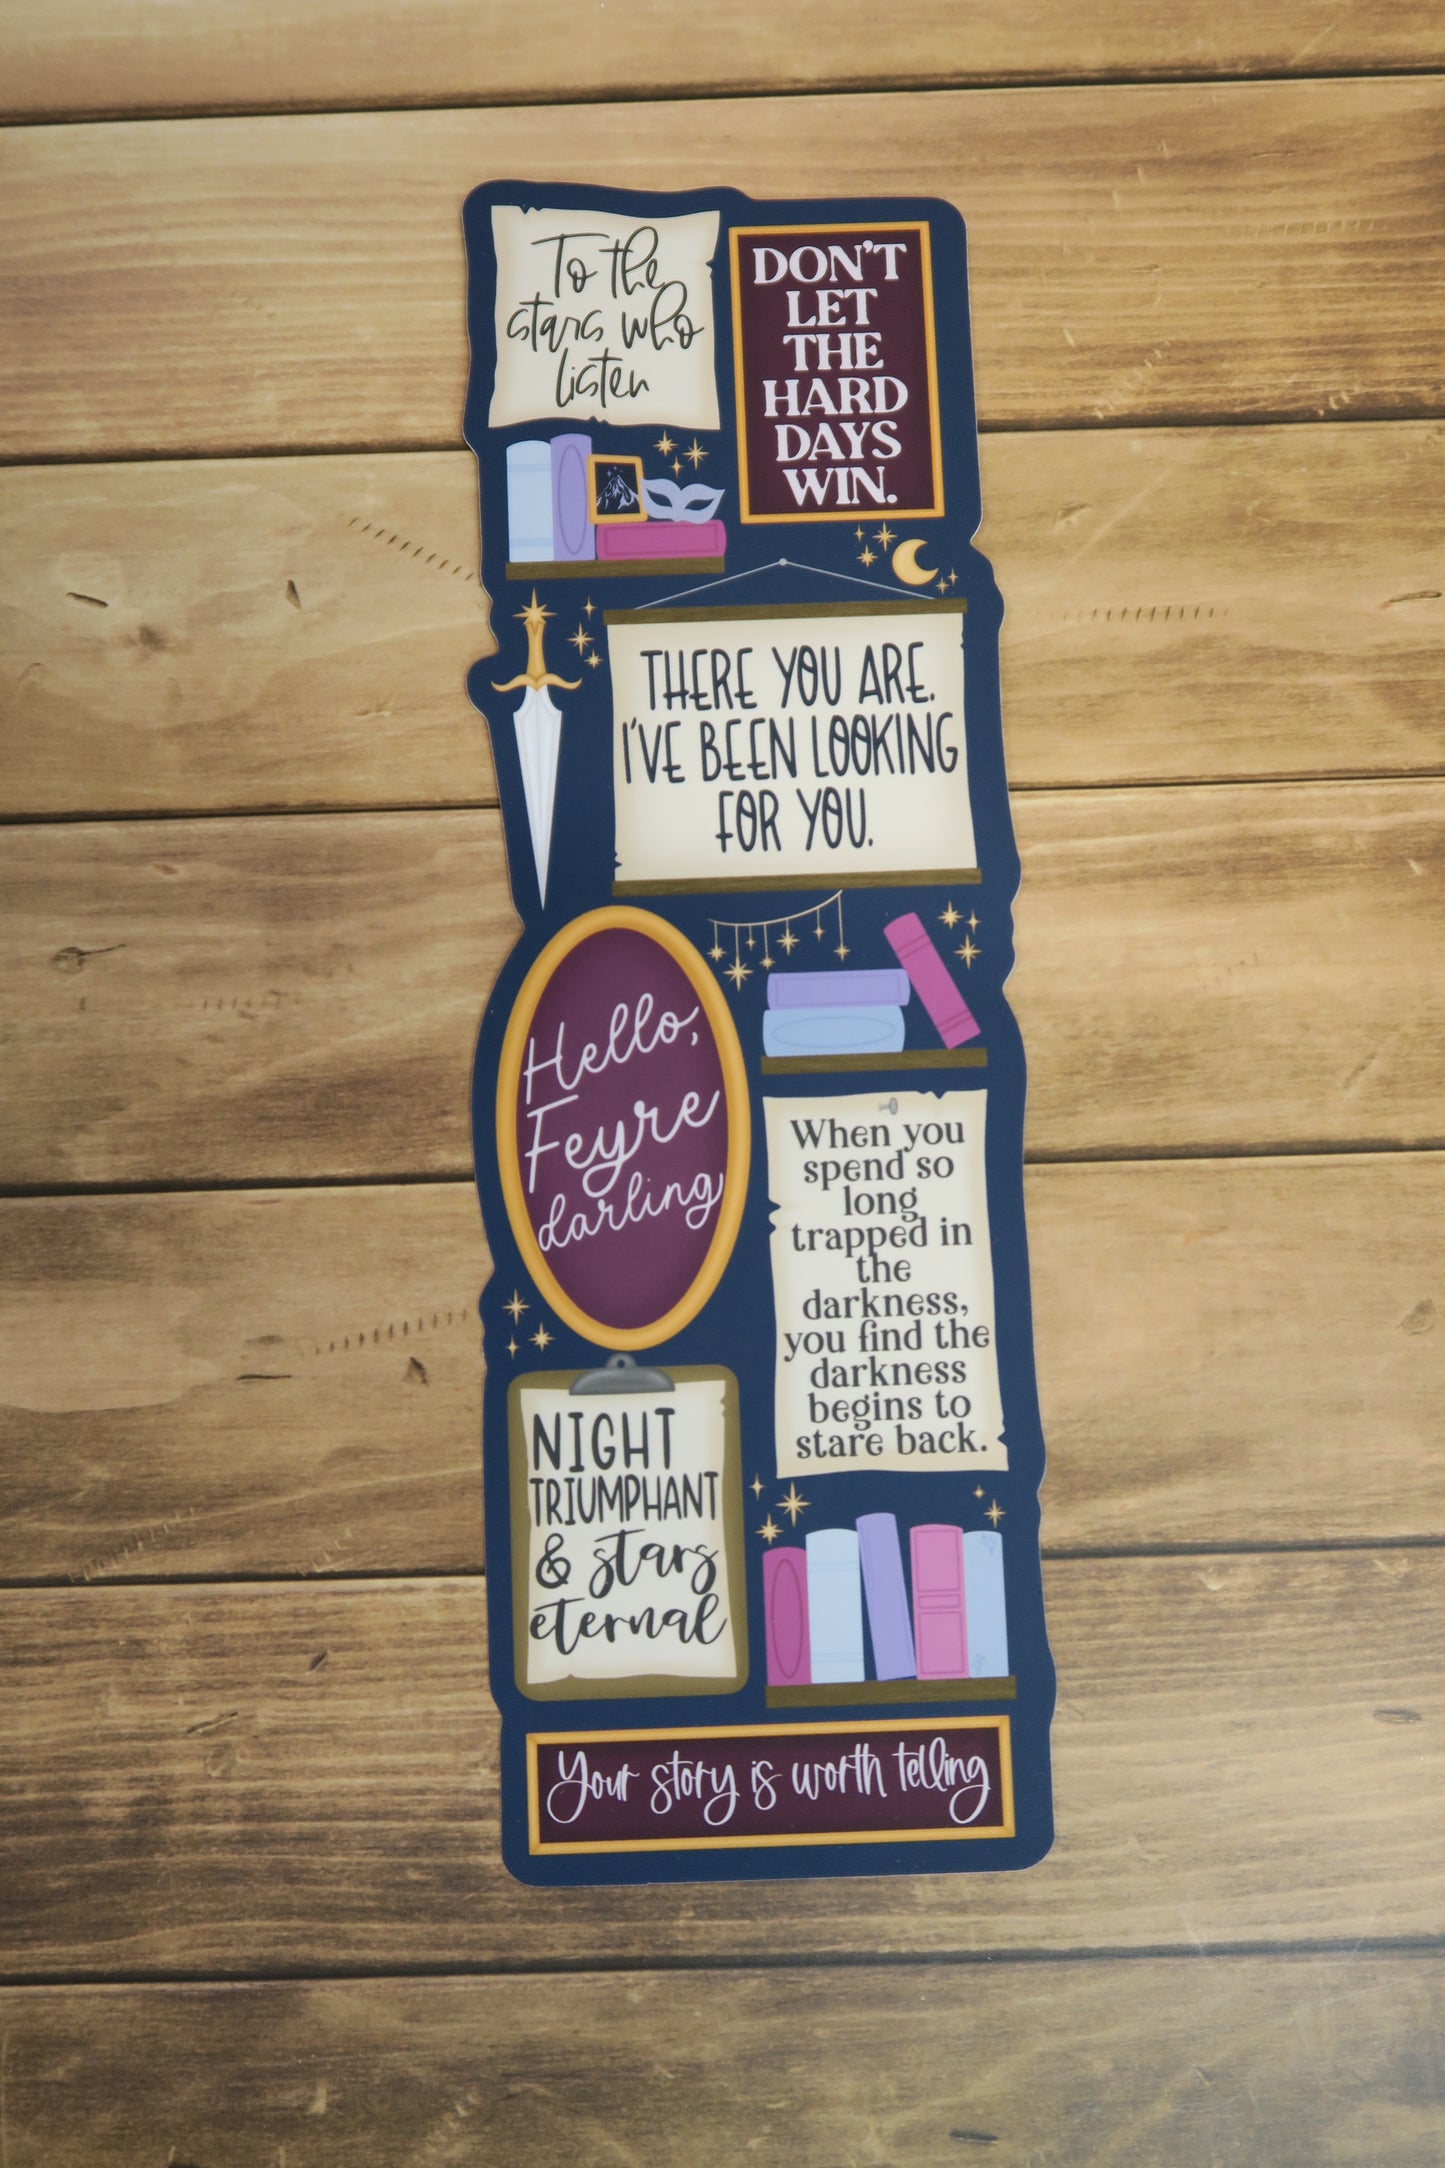 To the
stars who
listen
DON'T
LET
THE
HARD
DAYS
WIN.
THERE YOU ARE.
I'VE BEEN LOOKING
FOR YOU.
Hello,
Feyre
darling
When you
spend so
long
trapped in
the
darkness,
you find the
darkness
begins to
stare back.
NIGHT
TRIUMPHANT
& stars
eternal
Your story is worth telling